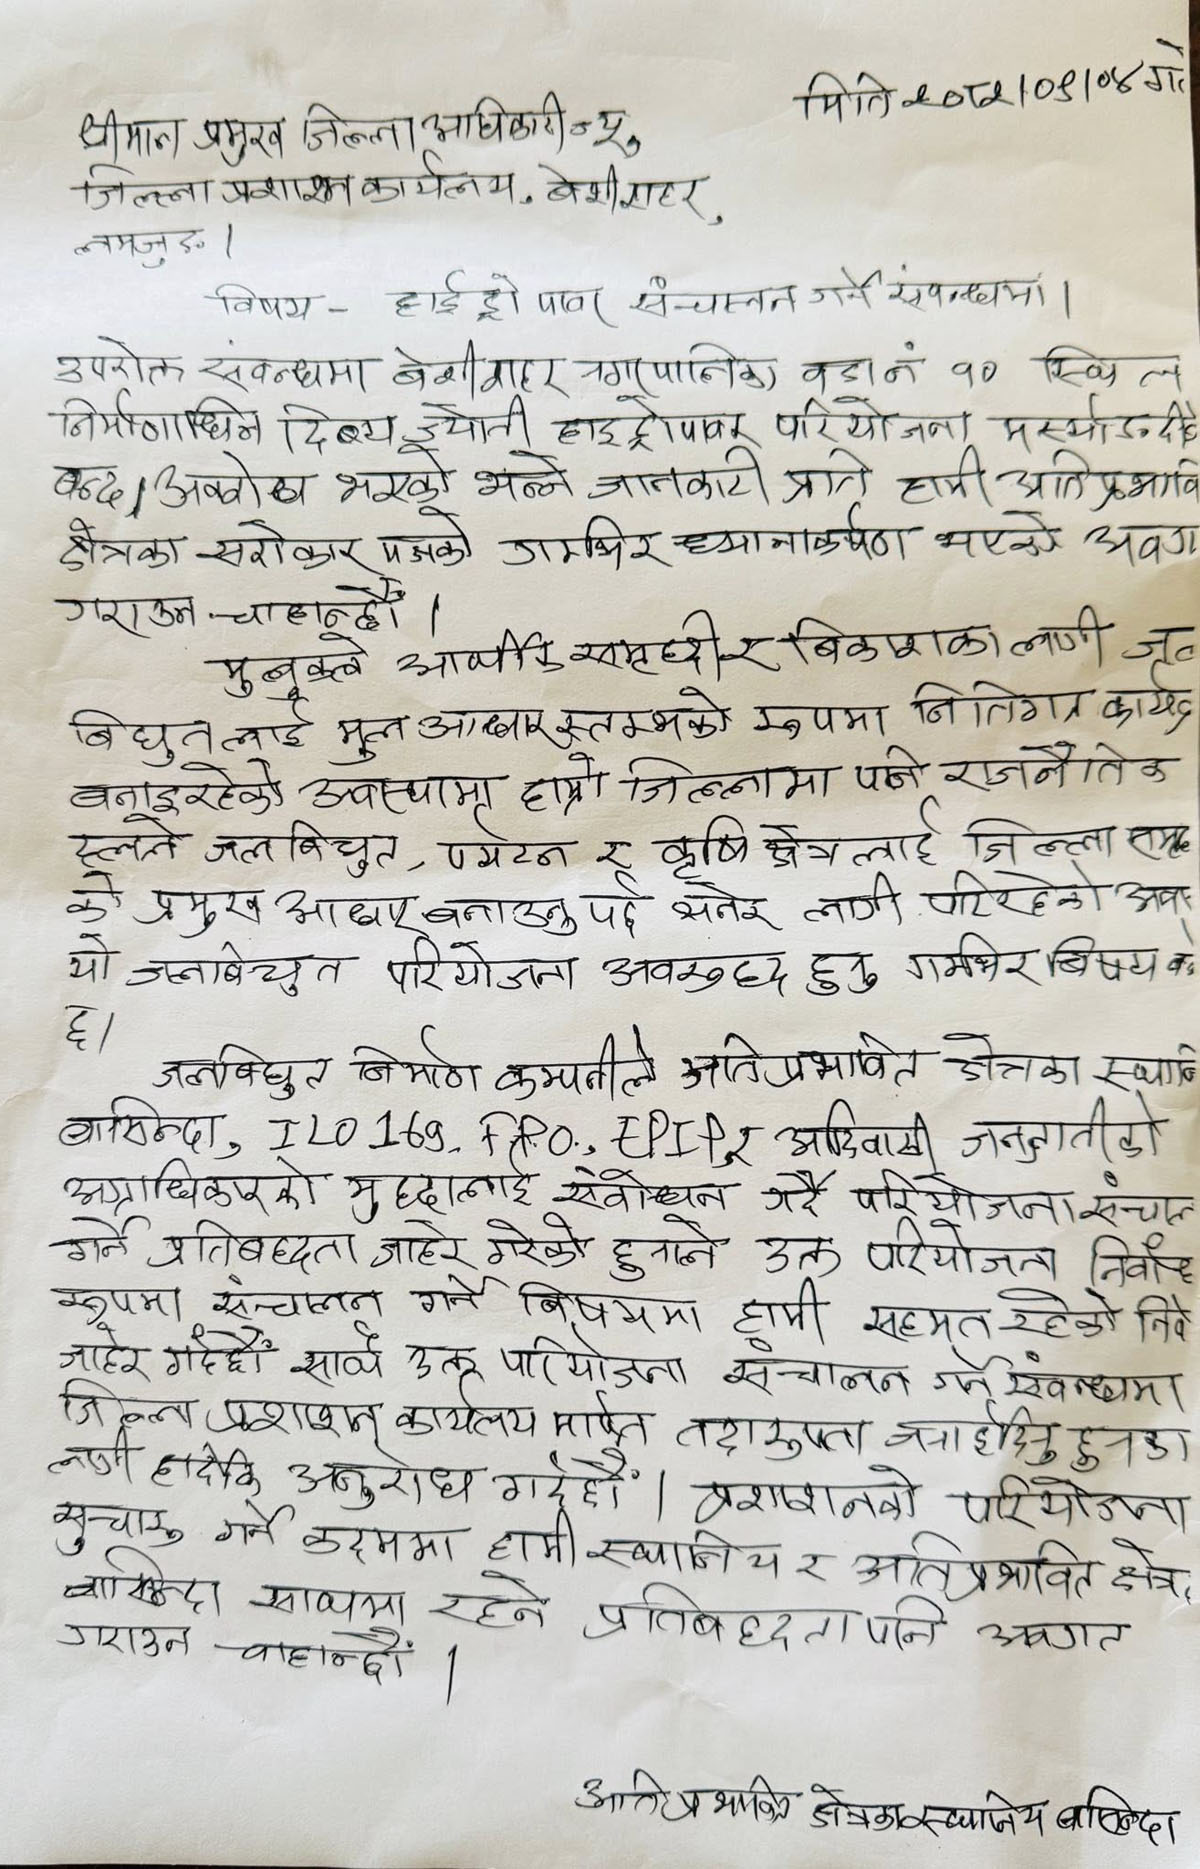 मिति २०८२।०९।०४ गते
श्रीमान प्रमुख जिल्ला अधिकारी ज्यू,
जिल्ला प्रशाशन कार्यलय, बेशीशहर,
लमजुङ।
विषय - हाईड्रो पावर संचालन गर्ने संवन्धमा।
उपरोक्त संवन्धमा बेशीशहर नगरपालिका वडा नं १० स्थित
निर्माणाधिन दिब्य ज्योती हाइड्रोपावर परियोजना मर्स्याङदी
बन्द/अवरोध भएको भन्ने जानकारी प्रति हामी अतिप्रभावि
क्षेत्रका सरोकार पक्षको गम्भिर ध्यानाकर्षण भएको अवग
गराउन चाहान्छौं।
मुलुकले आर्थीक समृध्दी र बिकाशका लागी जल
बिधुतलाई मुल आधारस्तम्भको रूपमा नितिगत कार्यक्र
बनाइरहेको अवस्थामा हाम्रो जिल्लामा पनि राजनैतिक
दलले जलबिधुत, पर्यटन र कृषि क्षेत्रलाई जिल्ला समृद्द
को प्रमुख आधार बनाउनु पर्द भनेर लागी परिरहेको अवस्
यो जलबिधुत परियोजना अवरुद्द हुनु गम्भिर बिषय बने
छ।
जलबिधुत निर्माण कम्पनीले अतिप्रभावित क्षेत्रका स्थानि
बासिन्दा, ILO 169, F.P.O., EPIP र आदिवासी जनजातीको
अग्राधिकारको मुद्दालाई संवोधन गर्दै परियोजना संचाल
गर्ने प्रतिबद्दता जाहेर गरेको हुनाले उक्त परियोजना निर्वाध
रूपमा संचालन गर्ने बिषयमा हामी सहमत रहेको निवे
जाहेर गर्दछौं साथै उक्त परियोजना संचालन गर्ने संवन्धमा
जिल्ला प्रशाशन कार्यलय मार्फत तदारुपता जनाईदिनु हुनका
लागी हार्दिक अनुरोध गर्दछौं। प्रशाशनको परियोजना
सुचारु गर्ने कदममा हामी स्थानिय र अतिप्रभावित क्षेत्रक
बासिन्दा साथमा रहने प्रतिबद्दता पनि अवगत
गराउन चाहान्छौं।
अतिप्रभावित क्षेत्रका स्थानिय बासिन्दा